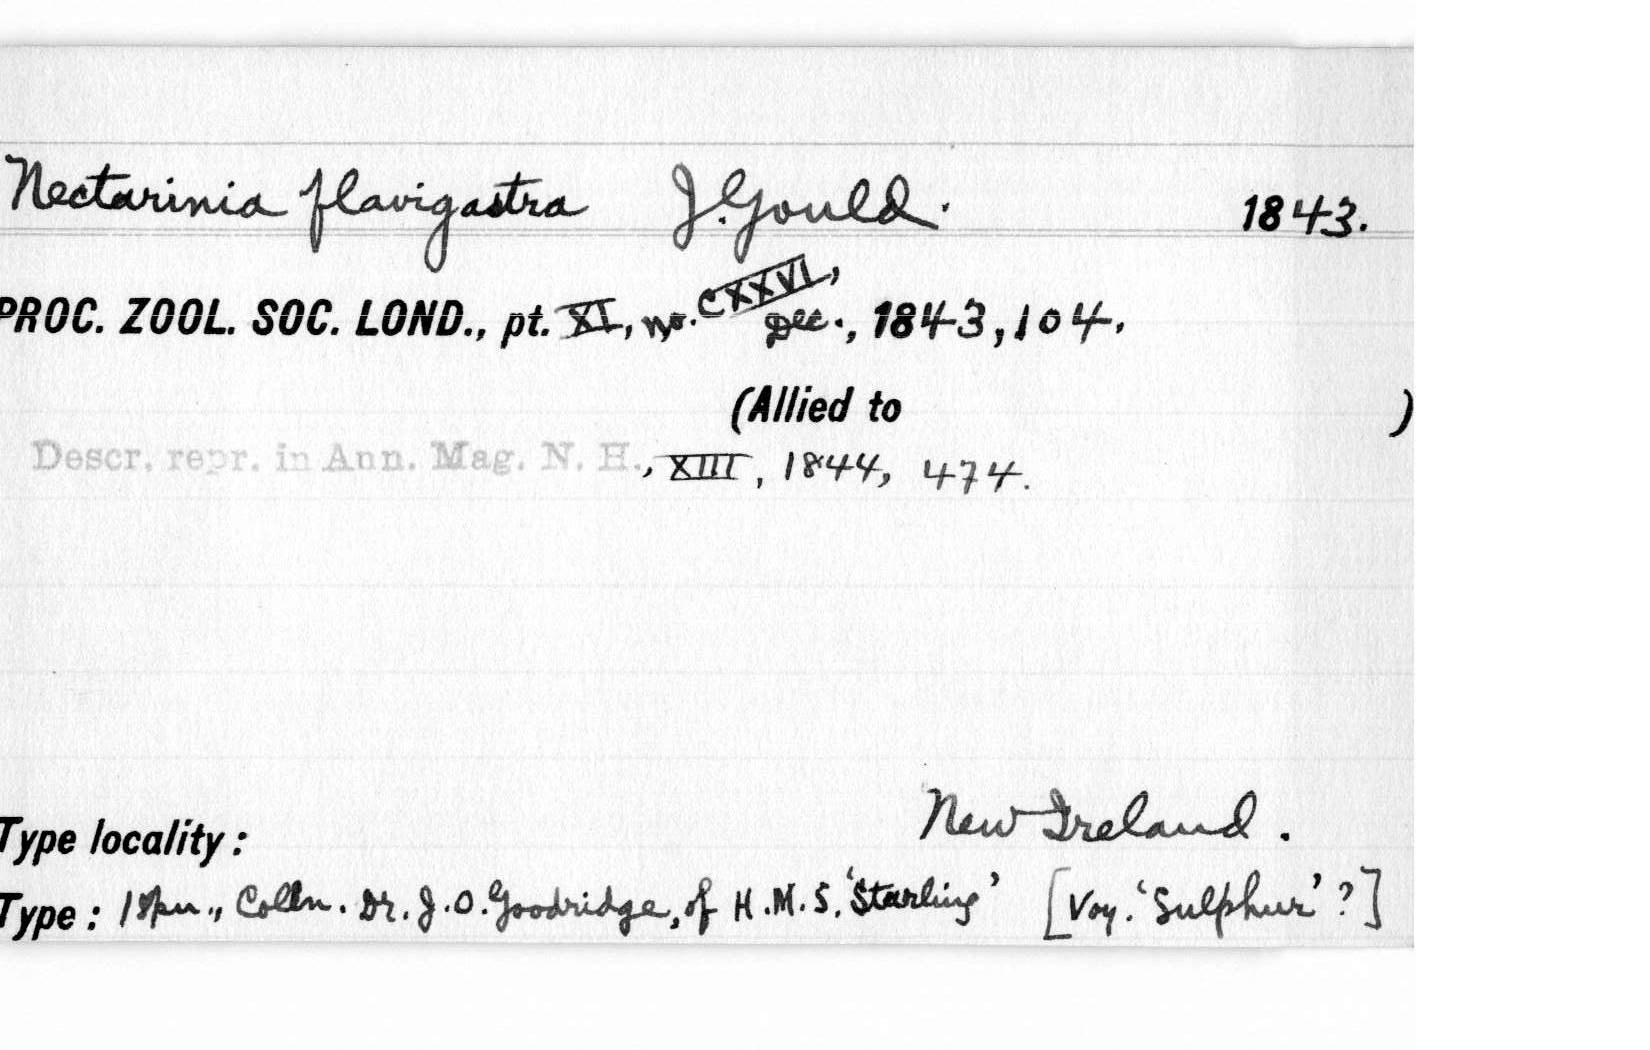 Nectarinia flavigastra J. Gould. 1843.
PROC. ZOOL. SOC. LOND., pt. XI, no. CXXVI, Dec., 1843, 104.
(Allied to )
Descr. repr. in Ann. Mag. N. H., XIII, 1844, 474.
Type locality: New Ireland.
Type: 1 Spn., Colln. Dr. J. O. Goodridge, of H.M.S. 'Starling' [Voy. 'Sulphur'?]